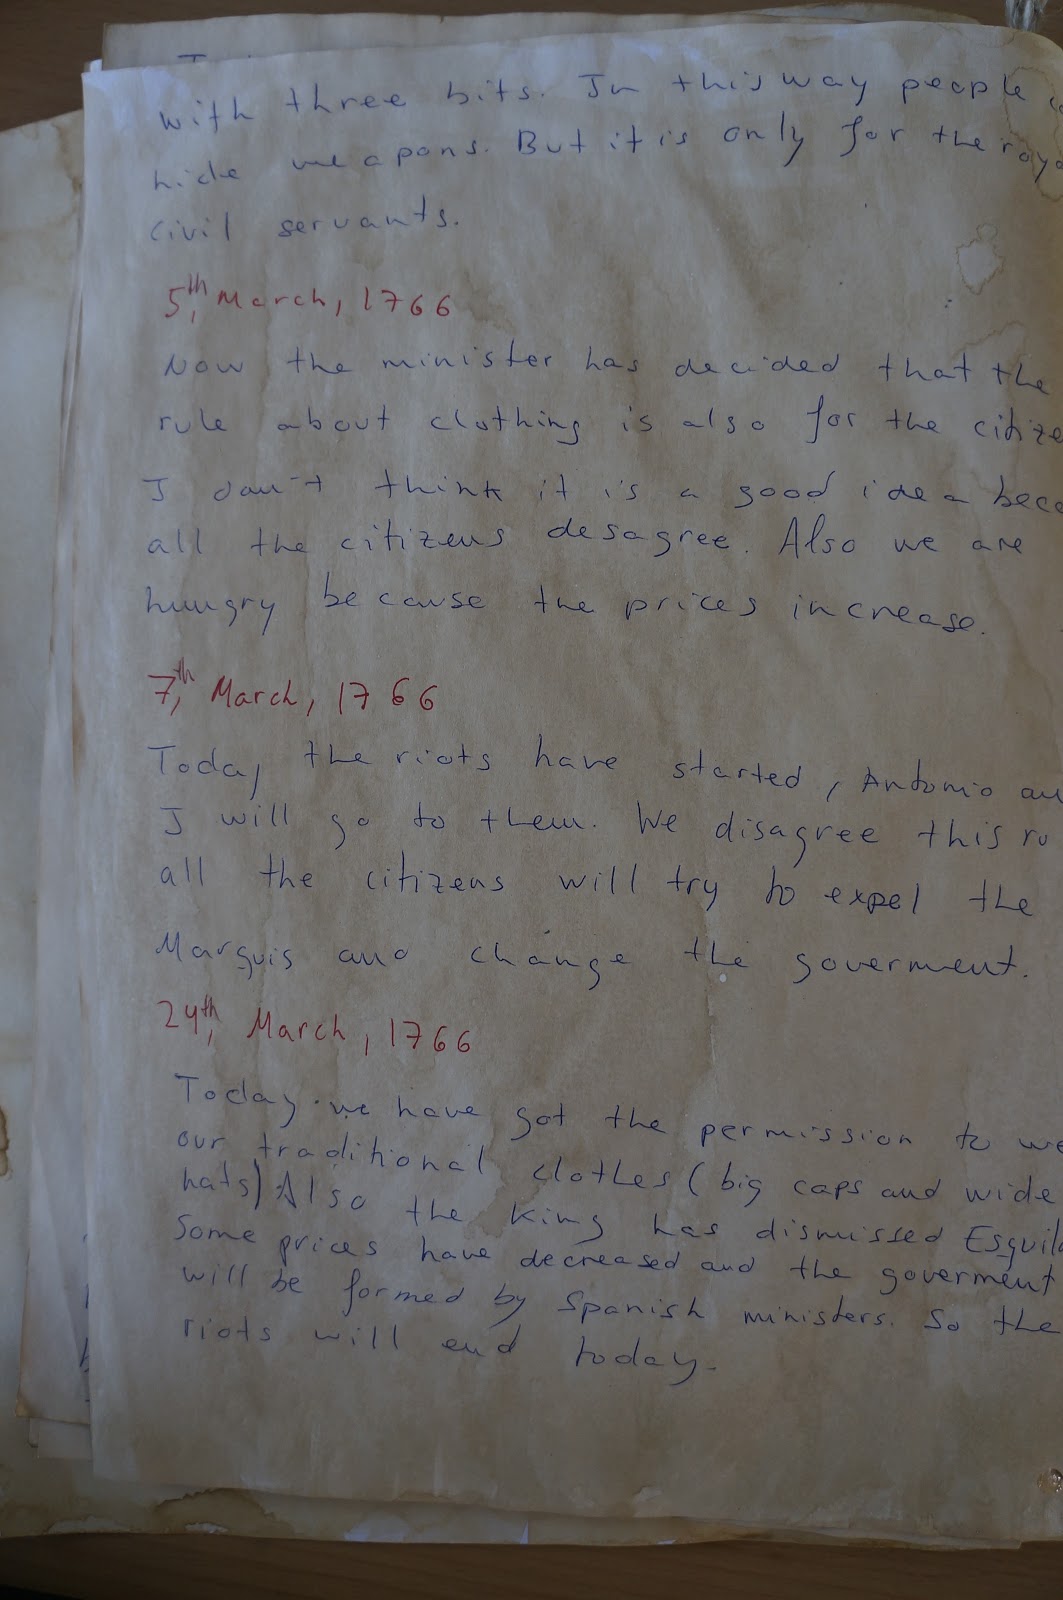 with three bits. In this way people
hide weapons. But it is only for the roya
civil servants.
5th, March, 1766
Now the minister has decided that the
rule about clothing is also for the citize
I don't think it is a good idea beca
all the citizens desagree. Also we are
hungry because the prices increase.
7th, March, 1766
Today the riots have started, Antonio an
I will go to them. We disagree this ru
all the citizens will try to expel the
Marquis and change the goverment.
24th, March, 1766
Today we have got the permission to we
our traditional clothes (big caps and wide
hats) Also the king has dismissed Esquila
Some prices have decreased and the goverment
will be formed by Spanish ministers. So the
riots will end today.